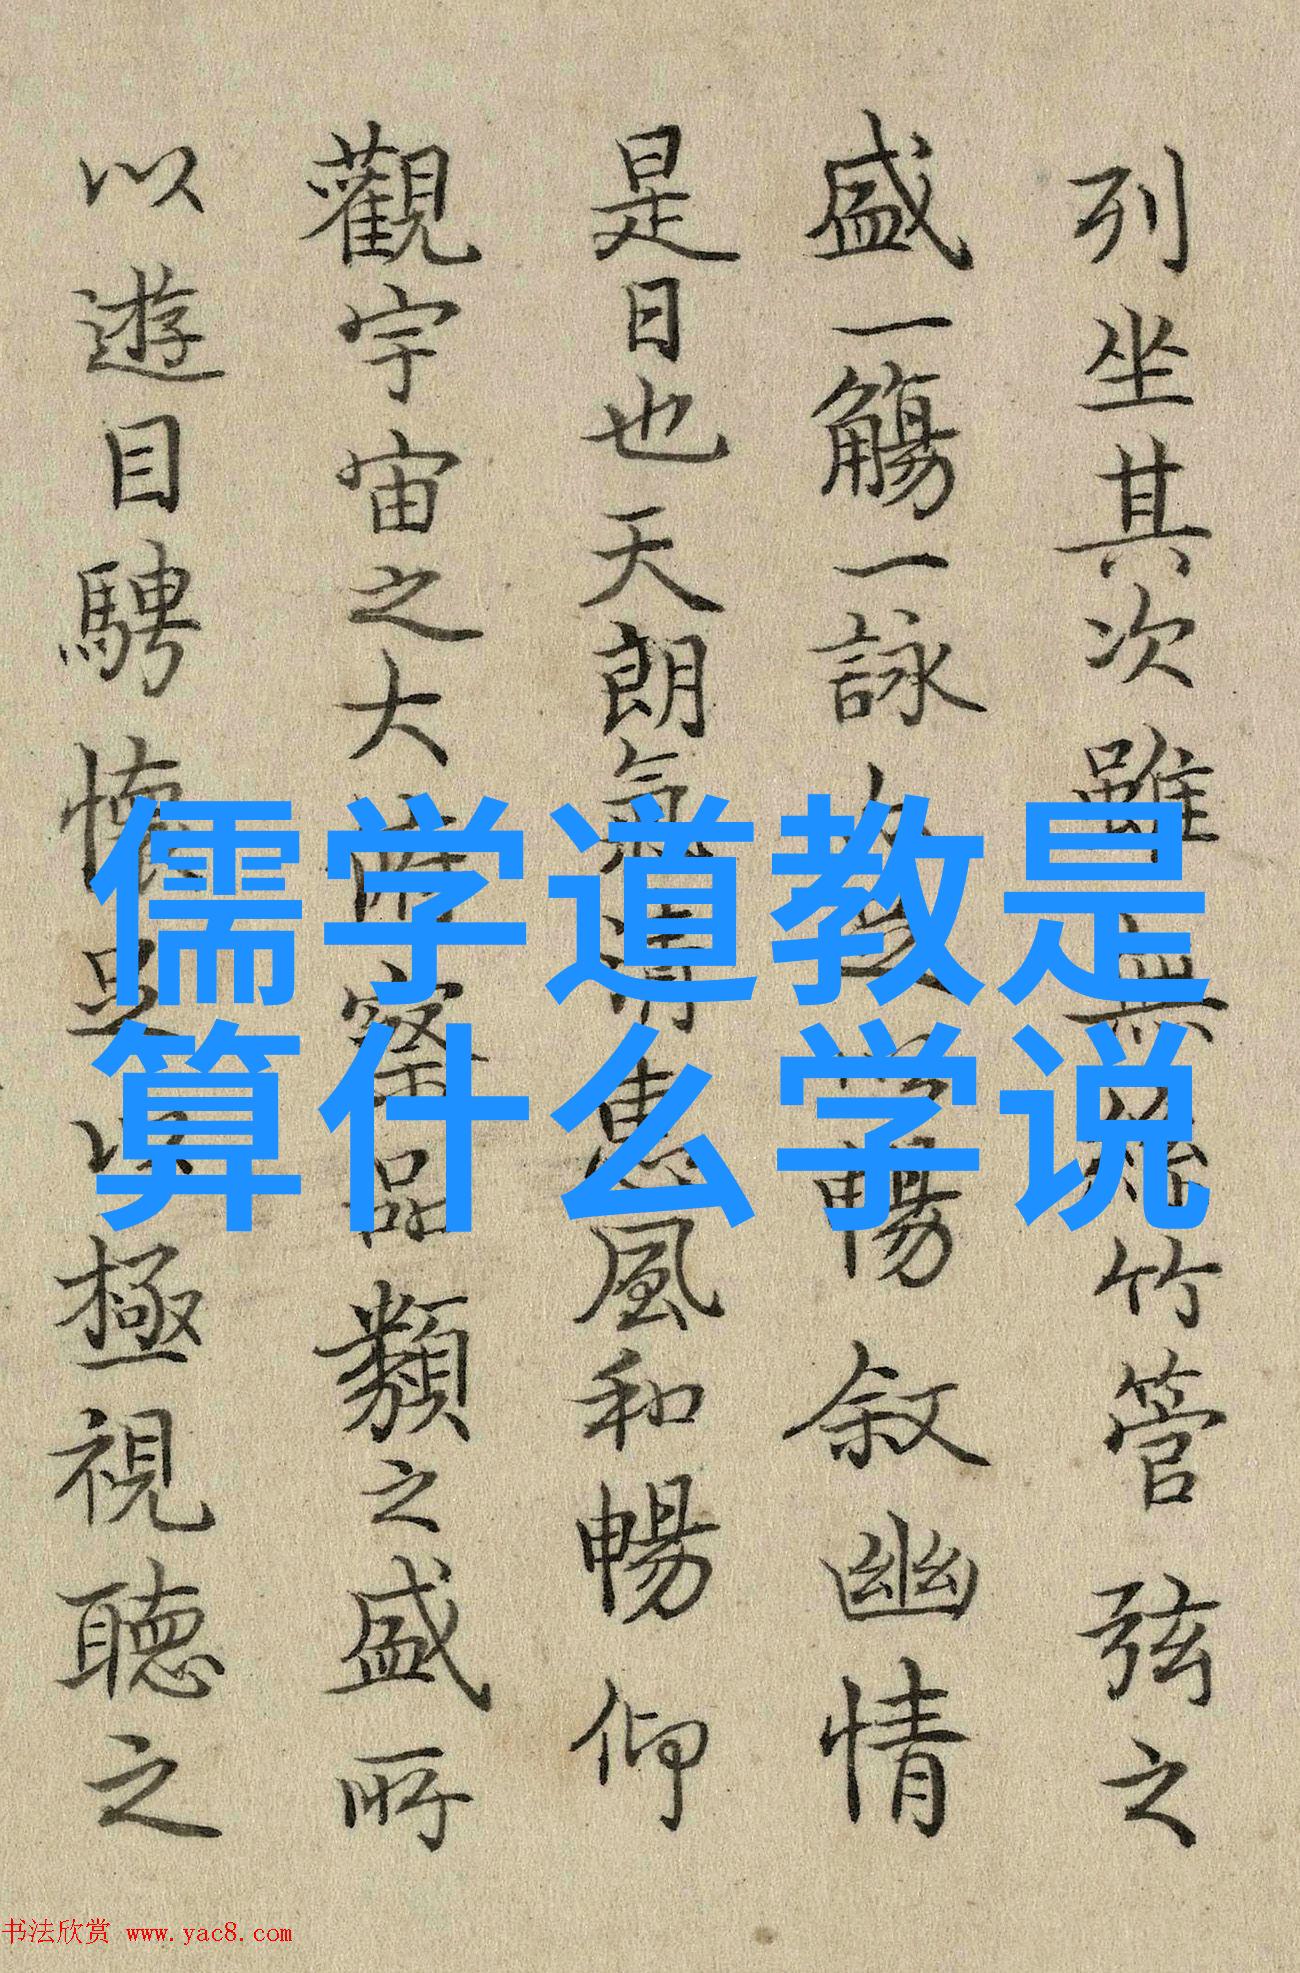 列坐其次雖無絲竹管弦之
盛一觴一詠暢叙幽情
是日也天朗氣清惠風和暢仰
觀宇宙之大俯察品類之盛所
以遊目騁懷足以極視聽之
儒学道教是
算什么学说
书法欣赏 www.yac8.com